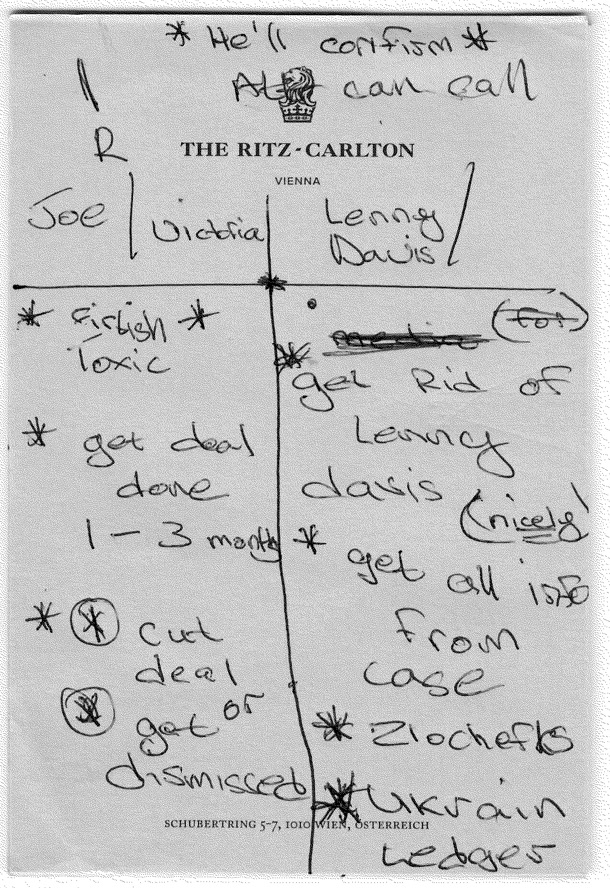 * He'll confirm *
can call
R
THE RITZ-CARLTON
VIENNA
Joe | Victoria
Lenny
Davis
* Firtish *
Toxic
* get deal
done
1 - 3 months
* * cut
deal
* get or
dismissed
(for)
* get Rid of
Lenny
davis
(nicely)
* get all info
from
case
* Zlochefks
* Ukrain
Ledger
SCHUBERTRING 5-7, 1010 WIEN, ÖSTERREICH